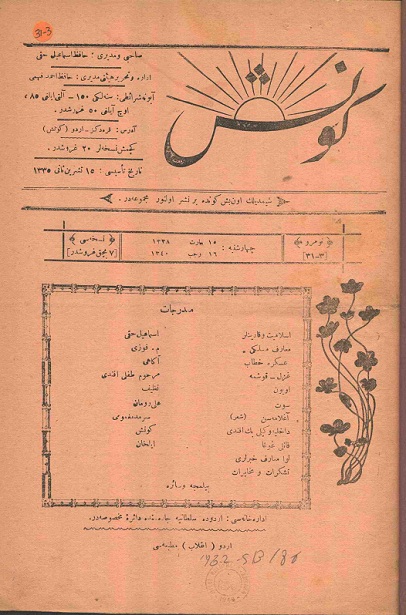 31-3
كونش
صاحبی و مدیری : حافظ اسماعیل حقی
اداره و تحریر هیئتی مدیری : حافظ احمد فهمی
آبونه شرائطی : سنه‌لكی ۱۵۰ — آلتی آیلغی ۸۵ ،
اوچ آیلغی ۵۰ غروشدر .
آدرس : قره‌دكز — اردو (كونش)
كچمش نسخه‌لر ۲۰ غروشدر .
تاریخ تأسیسی : ۱۵ تشرین ثانی ۱۳۳۵
شیمدیلك اون بش كونده بر نشر اولنور مجموعه‌در .
نومرو
[۳-۳۱]
چهارشنبه :
۱۵ مارت ۱۳۳۸
۱۶ رجب ۱۳۴۰
نسخه‌سی
[۷ بچق غروشدر]
مندرجات
اسلامیت و قادینلر اسماعیل حقی
معارف مسلكی م . فوزی
عسكره خطاب آكاهی
غزل — قوشمه مرحوم طفلی افندی
اویون نظیف
سوت علی رومان
آغلامه‌سن (شعر)
داخلیه وكیلی بك افندی‌یه كونش
قانلی غوغا ایلخان
لوا معارف خبرلری
تشكرات و مخابرات
بیلمجه و سائره
اداره‌خانه‌سی : اردوده سلطانیه جاده‌سنده دائرهٔ مخصوصه‌در .
اردو ( انقلاب ) مطبعه‌سی
1932-SB/180